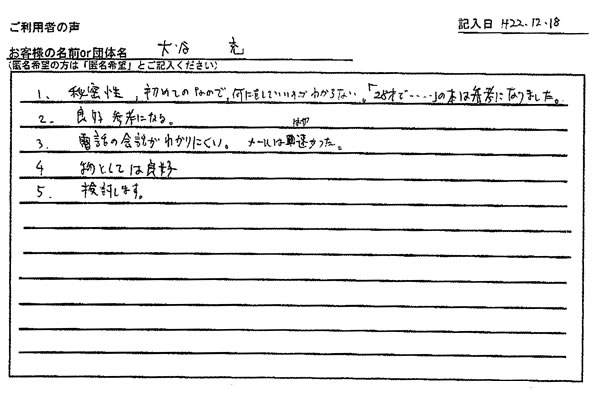 ご利用者の声
記入日 H22.12.18
お客様の名前or団体名 大谷 充
(匿名希望の方は「匿名希望」とご記入ください)
1. 秘密性,初めてのなので,何にをしていいのかわからない。「28才で‥‥」の本は参考になりました。
2. 良好 参考になる。
3. 電話の会話がわかりにくい。 メールは
4 物としては良好
5. 検討します。